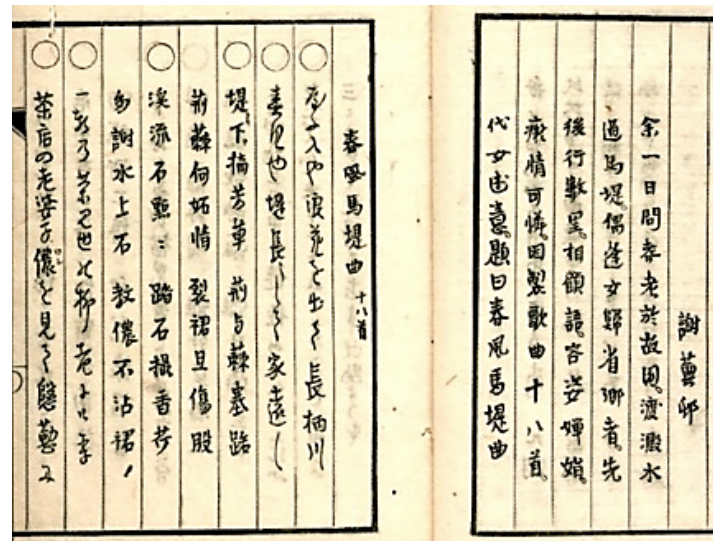 謝蕪邨
余一日問耆老於故園。渡澱水
過馬堤。偶逢女歸省郷者。先
後行數里。相顧語。容姿嬋娟。
癡情可憐。因製歌曲十八首。
代女述意。題曰春風馬堤曲
春風馬堤曲 十八首
やぶ入や浪花を出て長柄川
春風や堤長うして家遠し
堤下摘芳草 荊与蕀塞路
荊蕀何妬情 裂裙且傷股
溪流石點〻 踏石撮香芹
多謝水上石 教儂不沾裙
一軒の茶見世の柳老にけり
茶店の老婆子儂を見て慇懃に